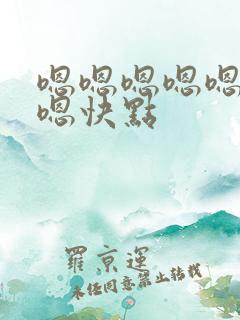 嗯嗯嗯嗯嗯
嗯快點
羅京運
未任同意禁止转载